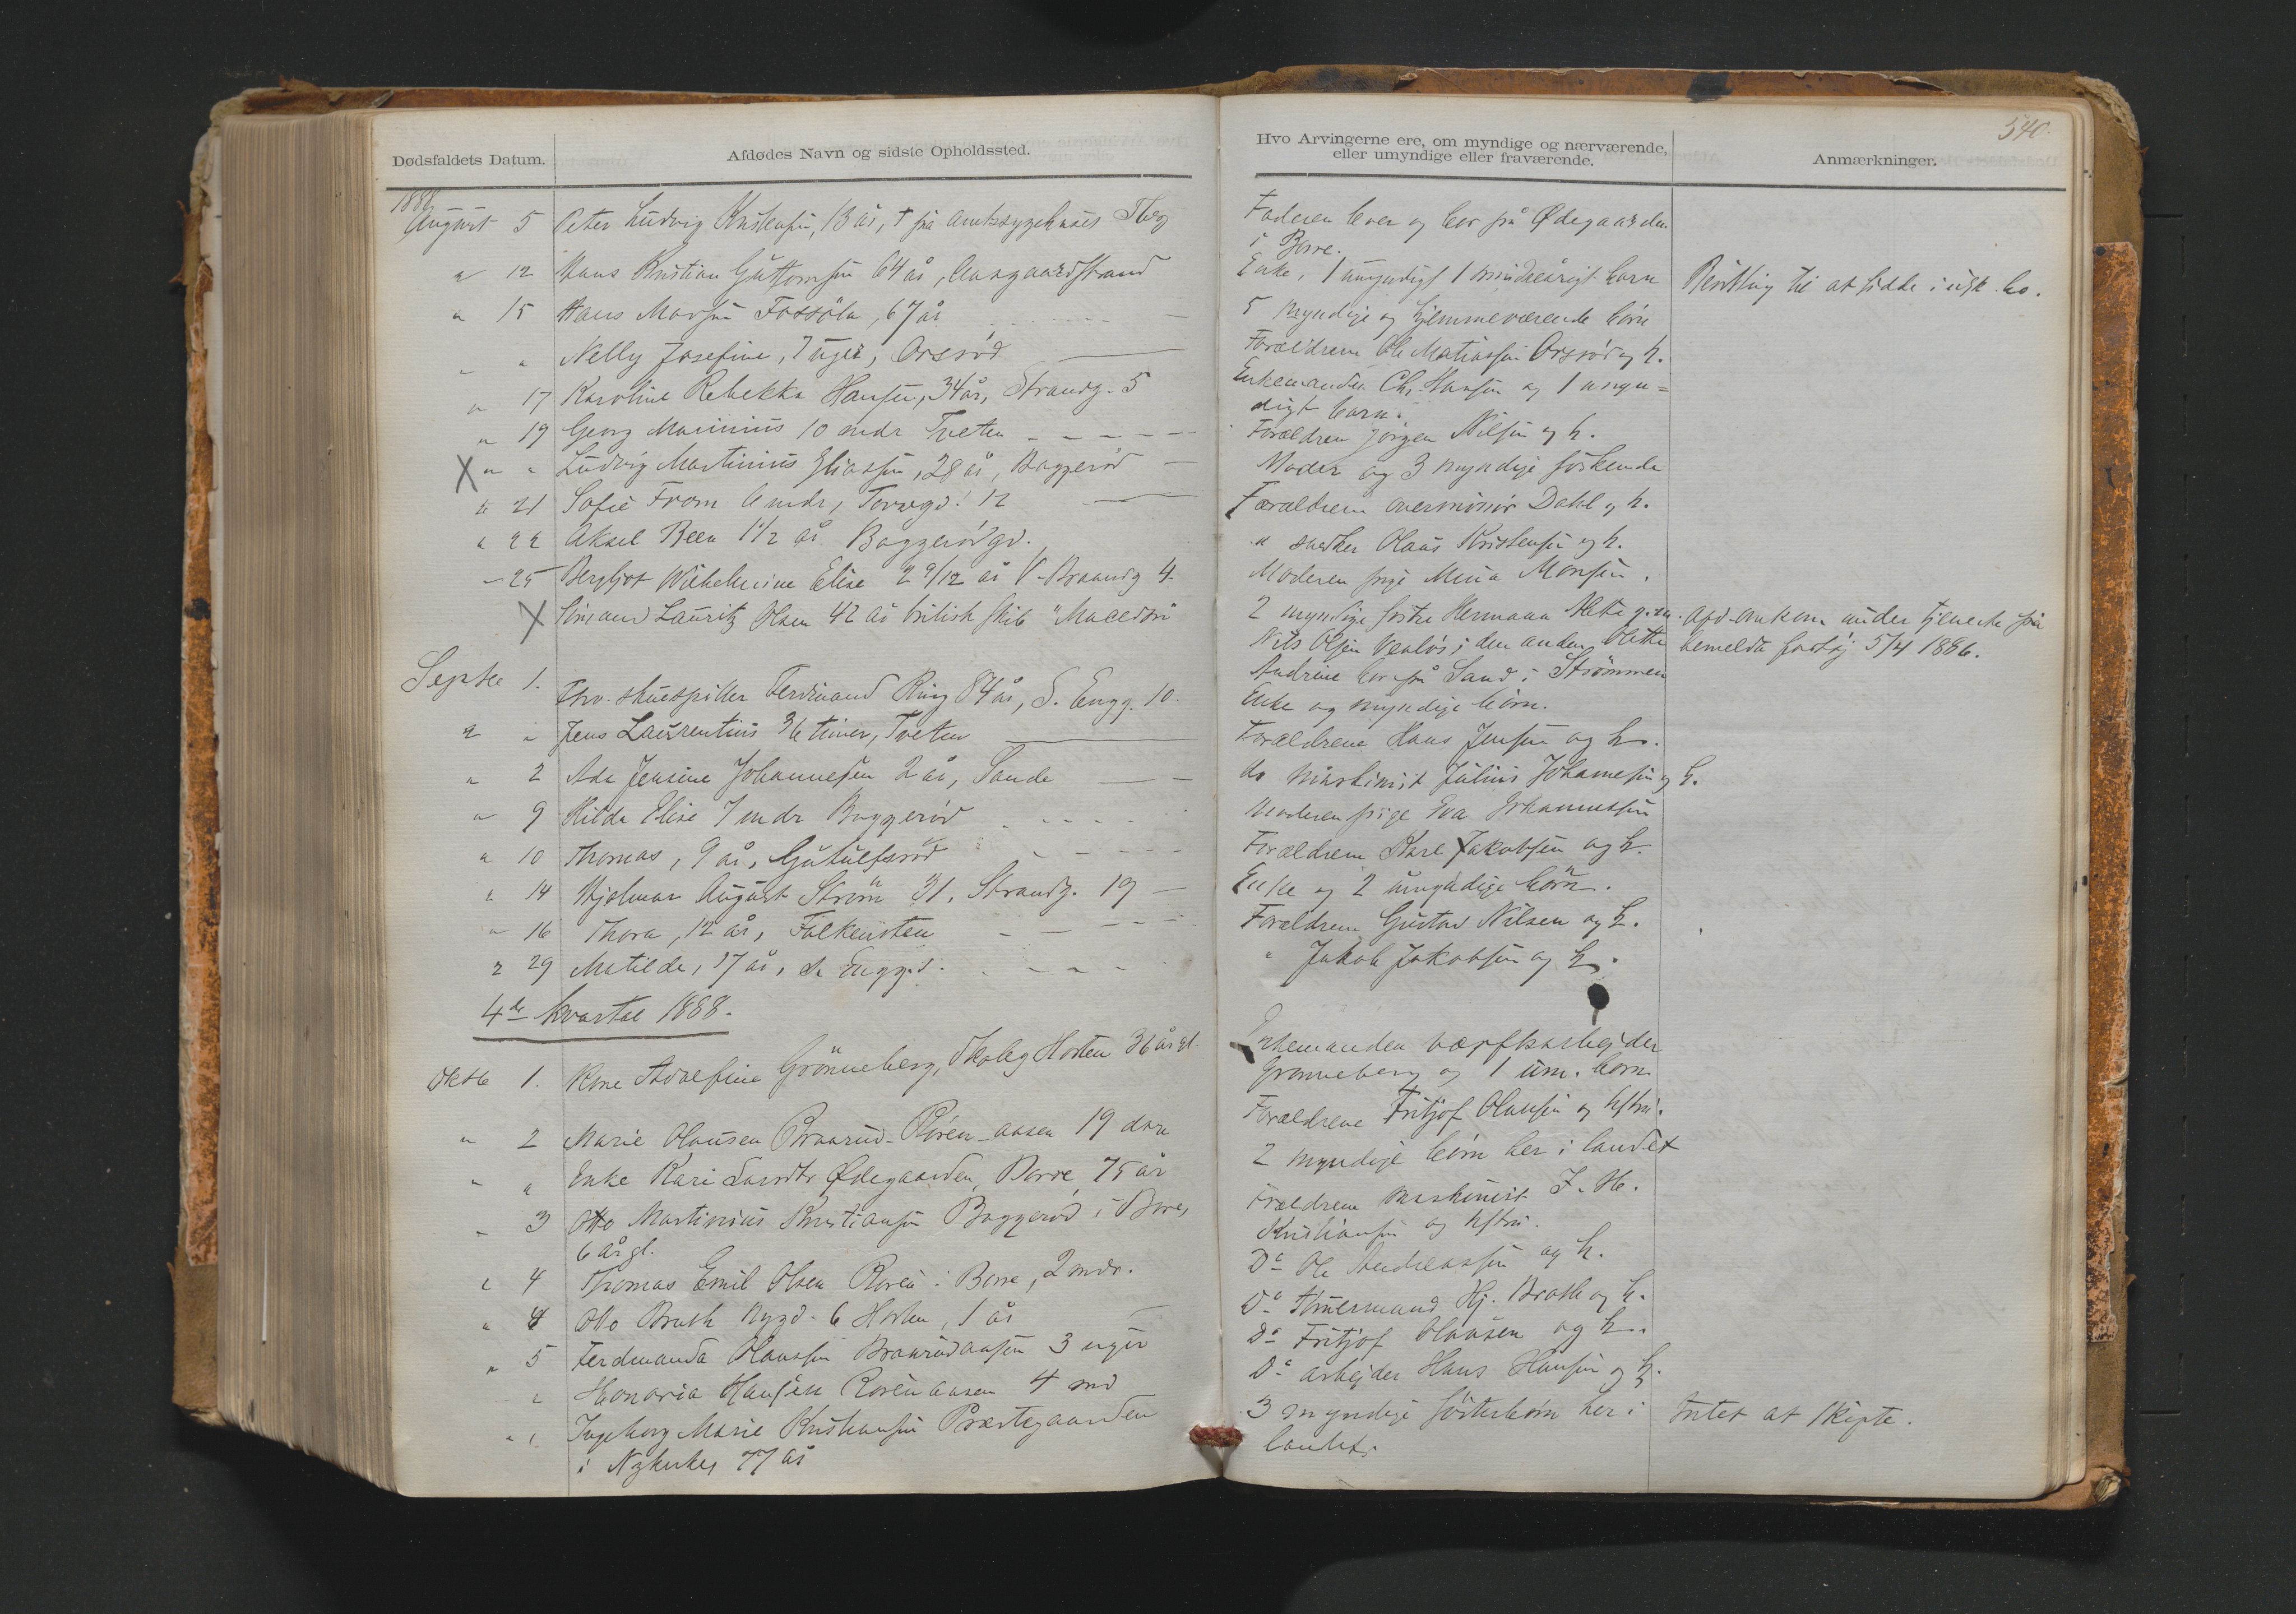 540.
Dødsfaldets Datum.
Afdødes Navn og sidste Opholdssted.
1888
August 5 Peter Ludvig Kristensen, 13 år, † på amtssygehuset Tbg
" 12 Hans Kristian Guttormsen 64 år, Aasgaardstrand
" 15 Hans Madsen Fossöla, 67 år
" " Nelly Josefine, 7 uger, Orsröd
" 17 Karoline Rebekka Hansen, 34 år, Strandg. 5
" 19 Georg Marinius 10 mdr Tveten
X " " Ludvig Martinius Eliassen, 28 år, Baggeröd
" 21 Sofie From 6 mdr, Torvgd. 12
" 22 Aksel Been 1 1/2 år Baggerödgd.
" 25 Bergljot Wilhelmine Elise 2 9/12 år V. Braarudg 4
X Sömand Lauritz Olsen 42 år britisk skib "Macedon"
Septbr 1. Fhv. skuespiller Ferdinand Ring 84 år, S. Engg. 10.
" " Jens Laurentius 36 timer, Tveten
" 2 Ada Jensine Johannesen 2 år, Sande
" 9 Hilda Elise 7 mdr Baggeröd
" 10 Thomas, 9 år, Gutulfsröd
" 14 Hjalmar August Ström 31, Strandg. 19
" 16 Thora, 12 år, Falkensten
" 29 Matilde, 17 år, Engg.
4de kvartal 1888.
Oktb 1. Kone Adolfine Grönneberg, Skoleg Horten 36 år gl.
" 2 Marie Olausen Braarud-Rören-aasen 19 dage
" " Enke Kari Larsdtr Ødegaarden, Borre, 75 år
" 3 Otto Martinius Kristiansen Baggeröd i Borre,
6 år gl.
" 4 Thomas Emil Olsen Roren i Borre, 2 mdr.
" 4 Otto Brath Nygd. 6 Horten, 1 år
" 5 Ferdinanda Olaussen Braarudaasen 3 uger
" Honoria Hansen Rorenaasen 4 md
" " Ingeborg Marie Kristiansen Præstegaarden
i Nykirke, 77 år
Hvo Arvingerne ere, om myndige og nærværende,
eller umyndige eller fraværende.
Anmærkninger.
Faderen lever og bor på Ødegaarden
i Borre.
Enke, 1 umyndigt 1 mindreårigt barn
Bevilling til at sidde i usk. bo.
5 myndige og hjemmeværende börn
Forældrene Ole Matiassen Orsröd og h.
Enkemanden Ch. Hansen og 1 umyn=
digt barn.
Forældrene Jörgen Nilsen og h.
Moder og 3 myndige söskende
Forældrene overmissör Dahl og h.
" snedker Olaus Kristensen og h.
Moderen pige Mina Monsen.
2 myndige söstre Hermana Mette g. m.
Afd. omkom under tjeneste på
Nils Olsen Veslös; den anden Olette
bemeldte fartöj 5/4 1886.
Andrine bor på Sand i Strömmen
Enke og myndige börn.
Forældrene Hans Jensen og h.
do maskinist Julius Johanesen og h.
Moderen pige Eva Johannessen
Forældrene Karl Jakobsen og h.
Enke og 2 umyndige börn.
Forældrene Gustav Nilsen og h.
" Jakob Jakobsen og h.
Enkemanden værftsarbejder
Grönneberg og 1 um. barn
Forældrene Fritjof Olausen og hstru.
2 myndige börn her i landet
Forældrene maskinist J. M.
Kristiansen og hstru.
Do Ole Andreassen og h.
Do Tömmermand Hj. Brath og h.
Do Fritjof Olausen og h.
Do arbejder Hans Hansen og h.
3 myndige sösterbörn her i
Intet at skifte.
landet.